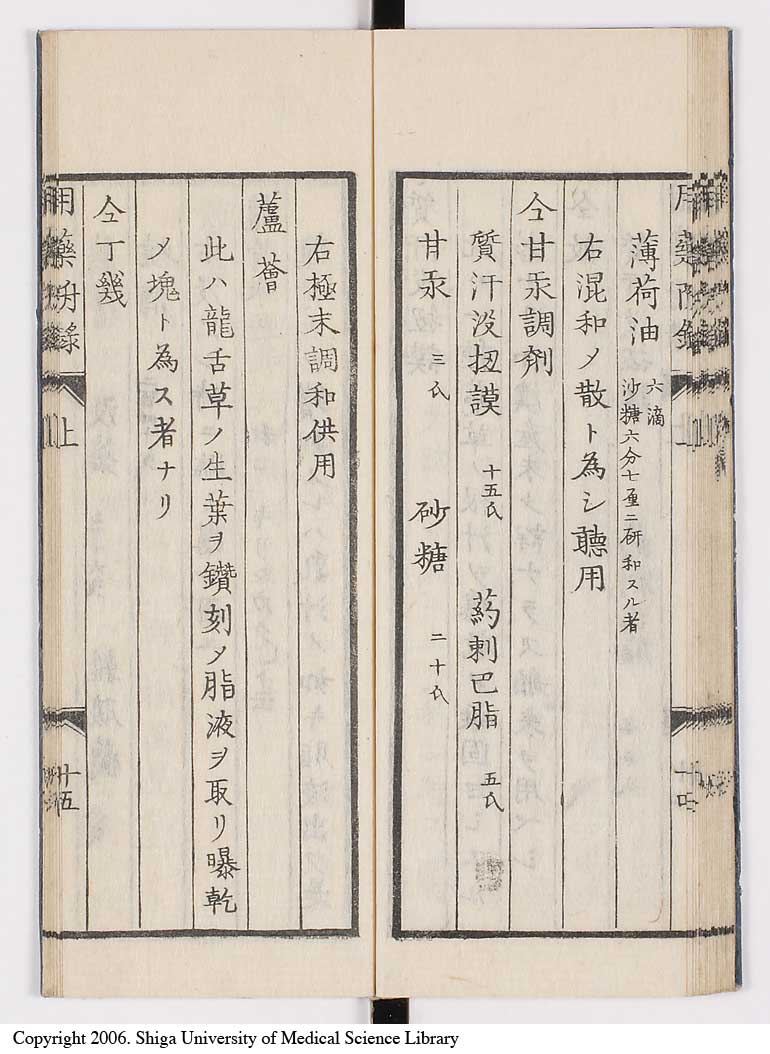 薄荷油 六滴 沙糖六分七厘ニ研和スル者
右混和〆散ト為シ聽用
仝甘汞調剤
質汗没扭謨 十五氏 葯刺巴脂 五氏
甘汞 三氏 砂糖 二十氏
右極末調和供用
蘆薈
此ハ龍舌草ノ生葉ヲ鑽刻〆脂液ヲ取リ曝乾
〆塊ト為ス者ナリ
仝丁幾
用藥附錄 上 十五
Copyright 2006. Shiga University of Medical Science Library